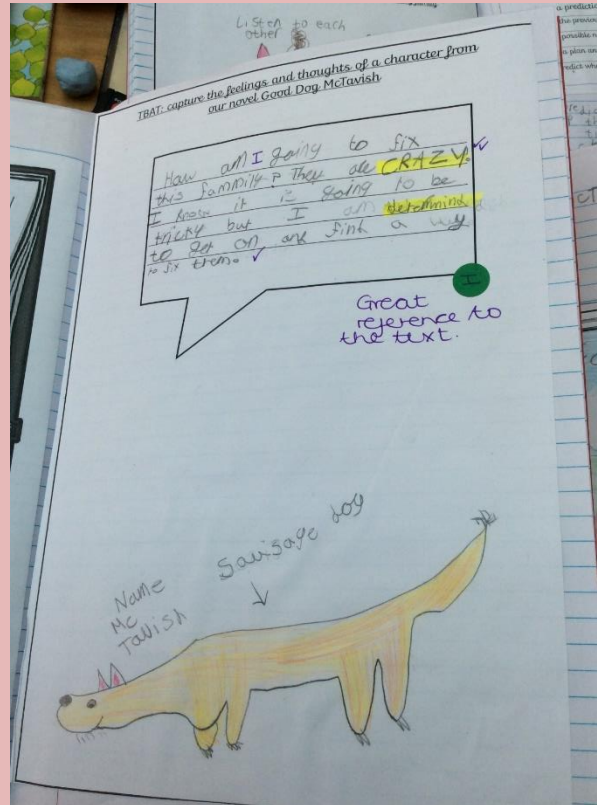 Listen to each
other
TBAT: capture the feelings and thoughts of a character from
our novel Good Dog McTavish
How am I going to fix
this fammily? They are CRAZY.
I know it is going to be
tricky but I am determind
to get on and find a way
to fix them.
I
Great
reference to
the text.
Sausage dog
Name
Mc
Tavish
a predictio
the previou
possible
n plan an
redict wh